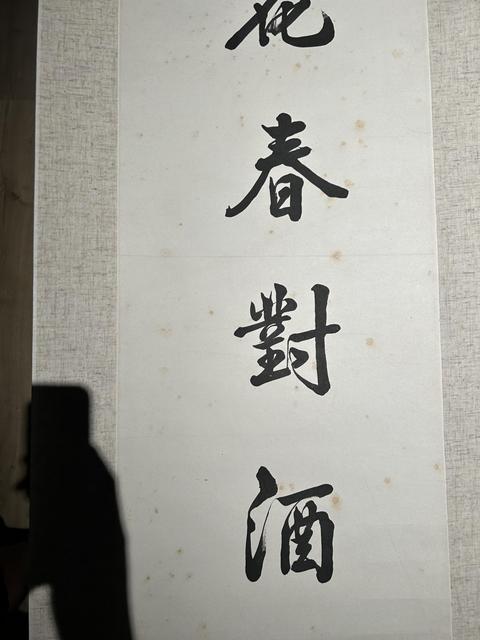 春對酒